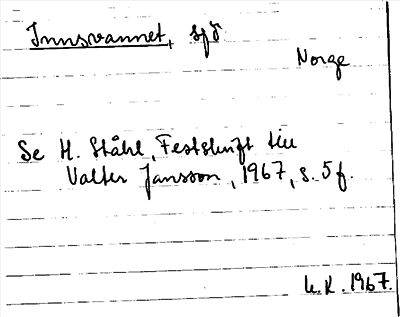 Innsvannet, sjö
Norge
Se H. Ståhl, Festskrift till
Valter Jansson, 1967, s. 5 f.
K. 1967.